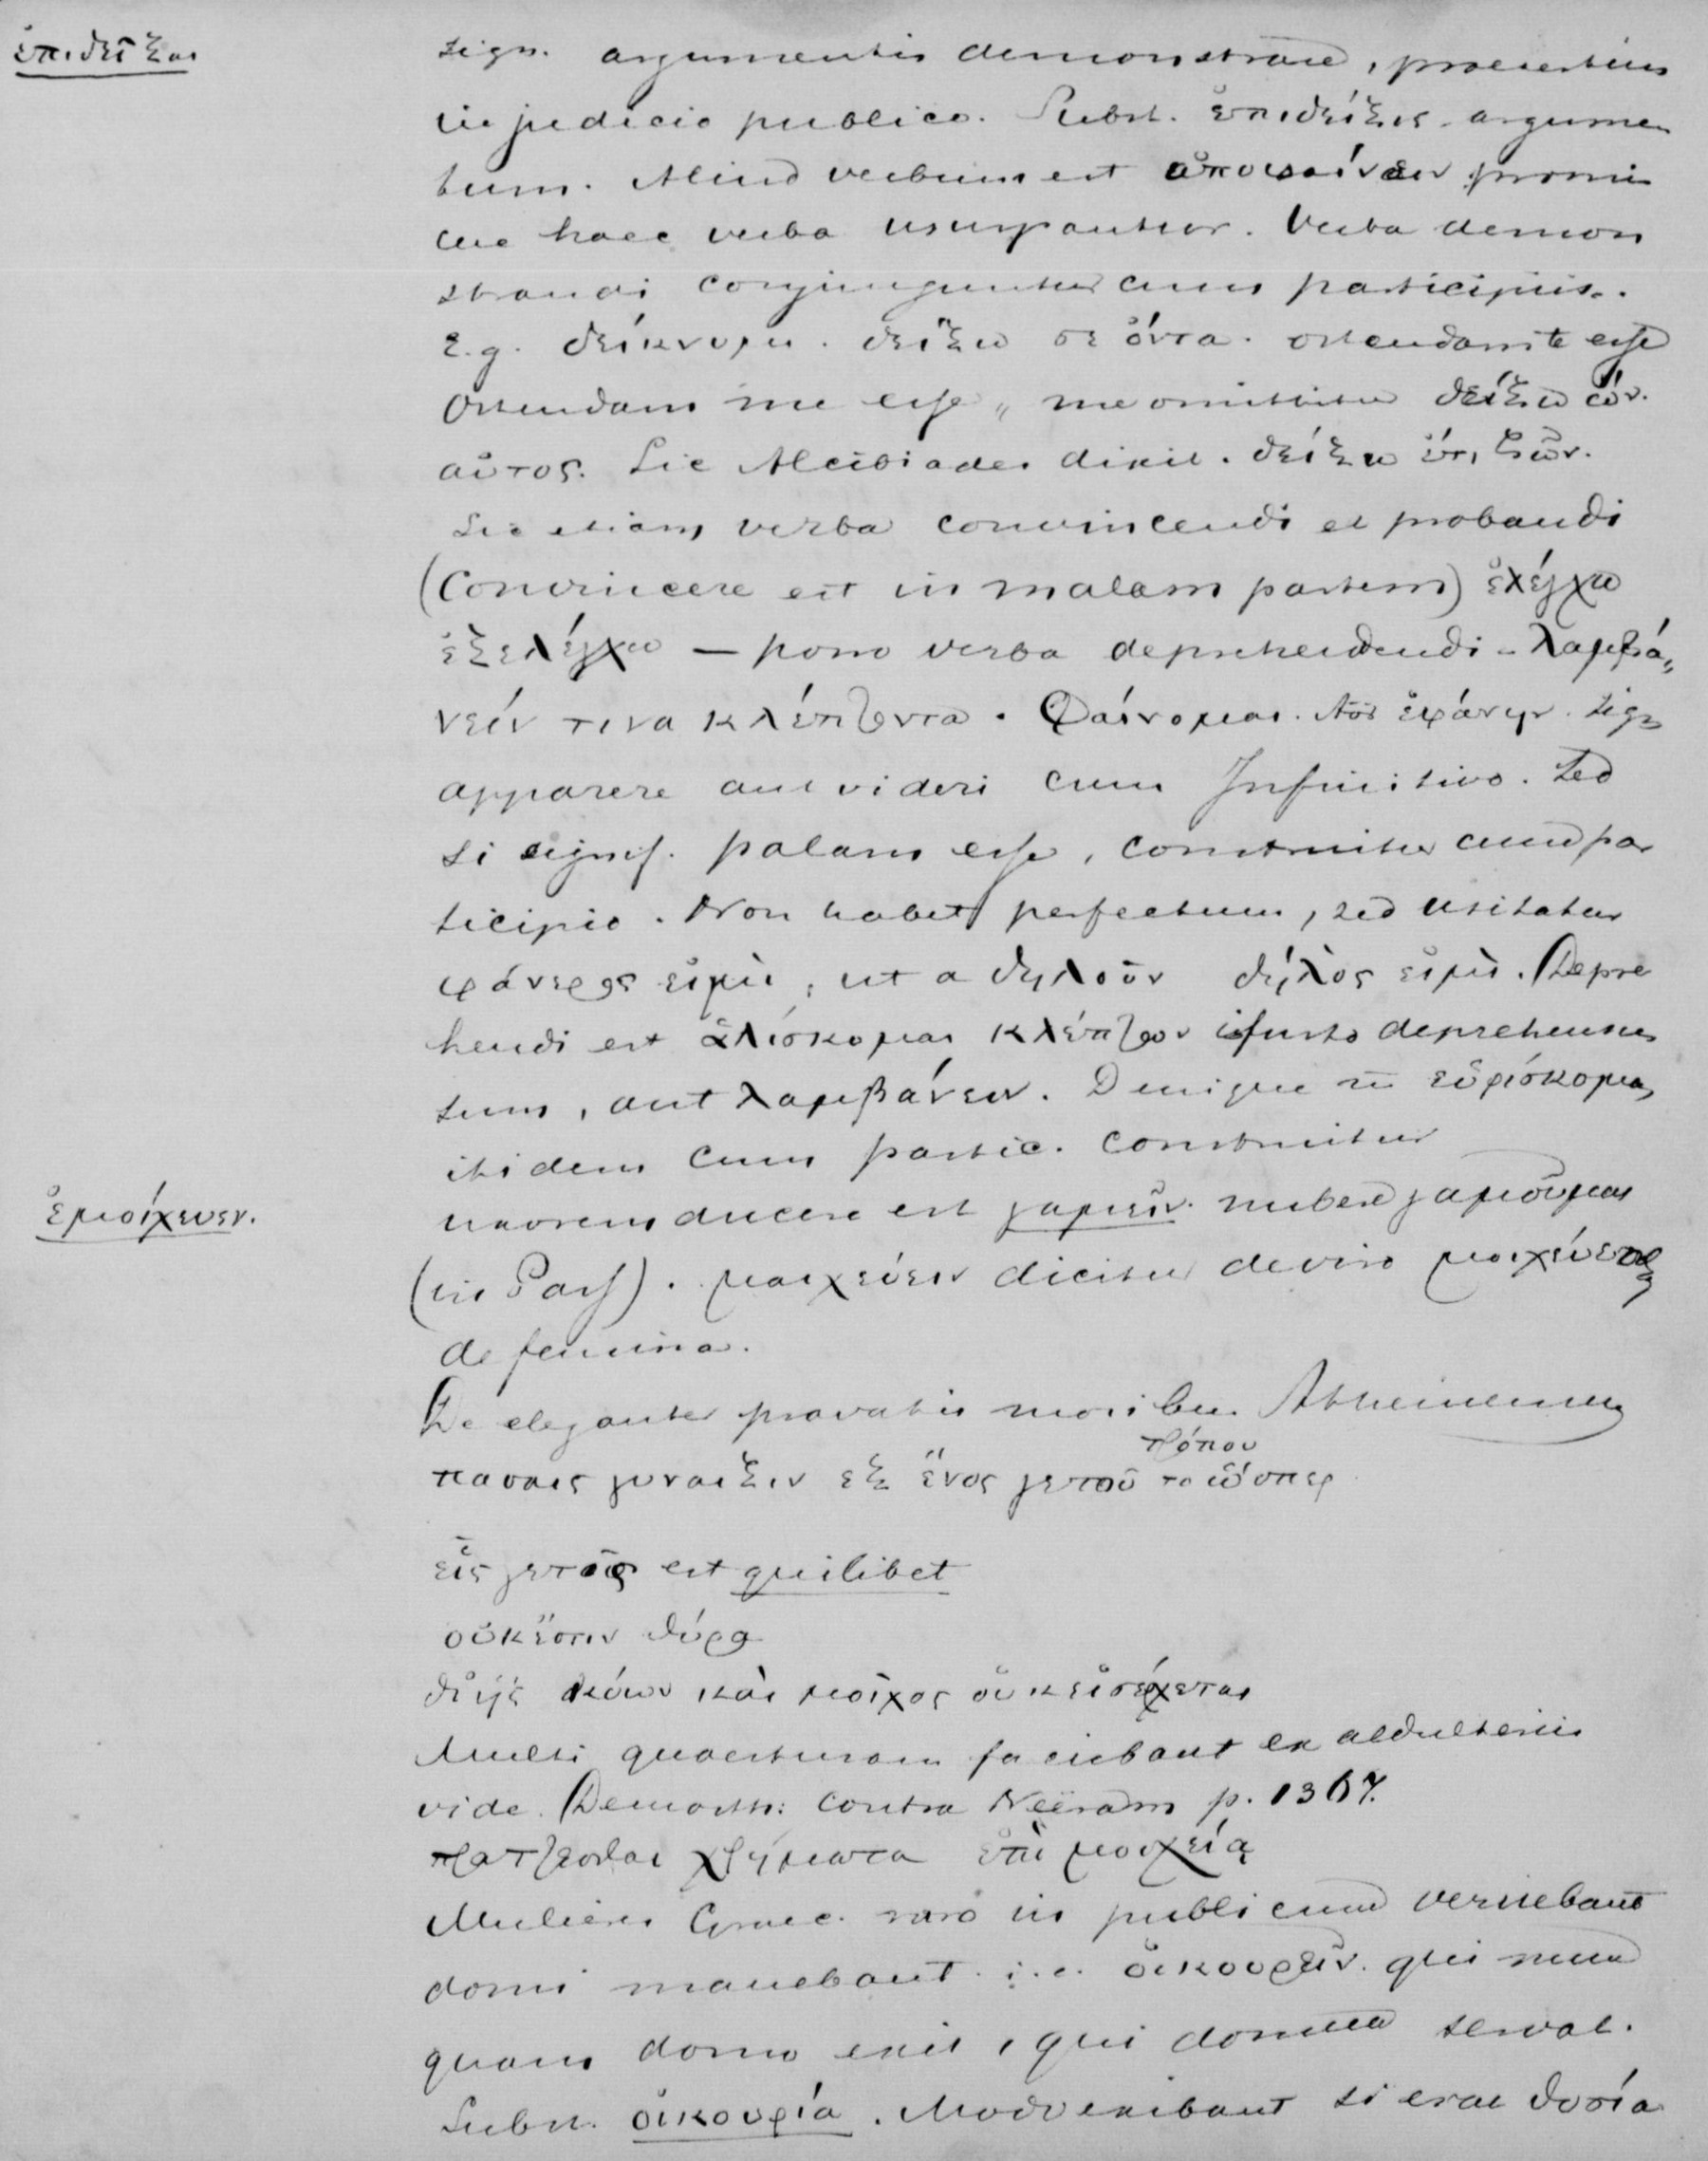 ἐπιδεῖξαι
sign. argumentis demonstrare, praesertim
in judicio publico. Subst. ἐπιδείξις argumen
tum. Aliud verbum est ἀποφαίνειν promis
cue haec verba usurpantur. Verba demon
strandi conjunguntur cum participiis.
E.g. δείκνυμι. δείξω σε ὄντα. ostendam te esse
Ostendam me esse „ me omittitur δείξω ὤν.
αὐτος. Sic Alcibiades dixit. δείξω ὅτι ζῶν.
Sic etiam verba convincendi et probandi
(Convincere est in malam partem) ἐλέγχω
ἐξελέγχω — porro verba deprehendendi - λαμβά„
νείν τινα κλέπτοντα. Φαίνομαι. Aor ἐφάνην. Sign
apparere aut videri cum Infinitivo. Sed
si signif. palam esse, construitur cum par
ticipio. Non habet perfectum, sed usitatur
φάνερος εἰμὶ, ut a δηλοῦν δῆλος εἰμὶ. Depre
hendi est ἁλίσκομαι κλέπτων i furto deprehensus
sum, aut λαμβάνειν. Denique τὸ εὑρίσκομαι
itidem cum partic. construitur
ἐμοίχευεν.
uxorem ducere est γαμεῖν. nubere γαμοῦμαι
(in Pass). μοιχεύειν dicitur de viro μοιχεύεσθαι
de femina.
De eleganter pravatis moribus Atheniensium
τρόπου
πασαις γυναιξιν εξ ἕνος γετοῦ το ὥσπερ
εἷς γετοῦς est quilibet
οὐκ ἔστιν θύρα
δι ἧς κύων καὶ μοῖχος οὐκ εἰσέρχεται
Multi quaesturam faciebant ex adulteriis
vide. Demosth: contra Neeram p. 1367.
πραττεσθαι χρήματα ἐπὶ μοιχείᾳ
Mulieres Graec. raro in publicum veniebant
domi manebant. i.e. οἰκουρεῖν. qui num
quam domo exit, qui domum servat.
Subst. οἰκουρία. Modo exibant si erat θυσία